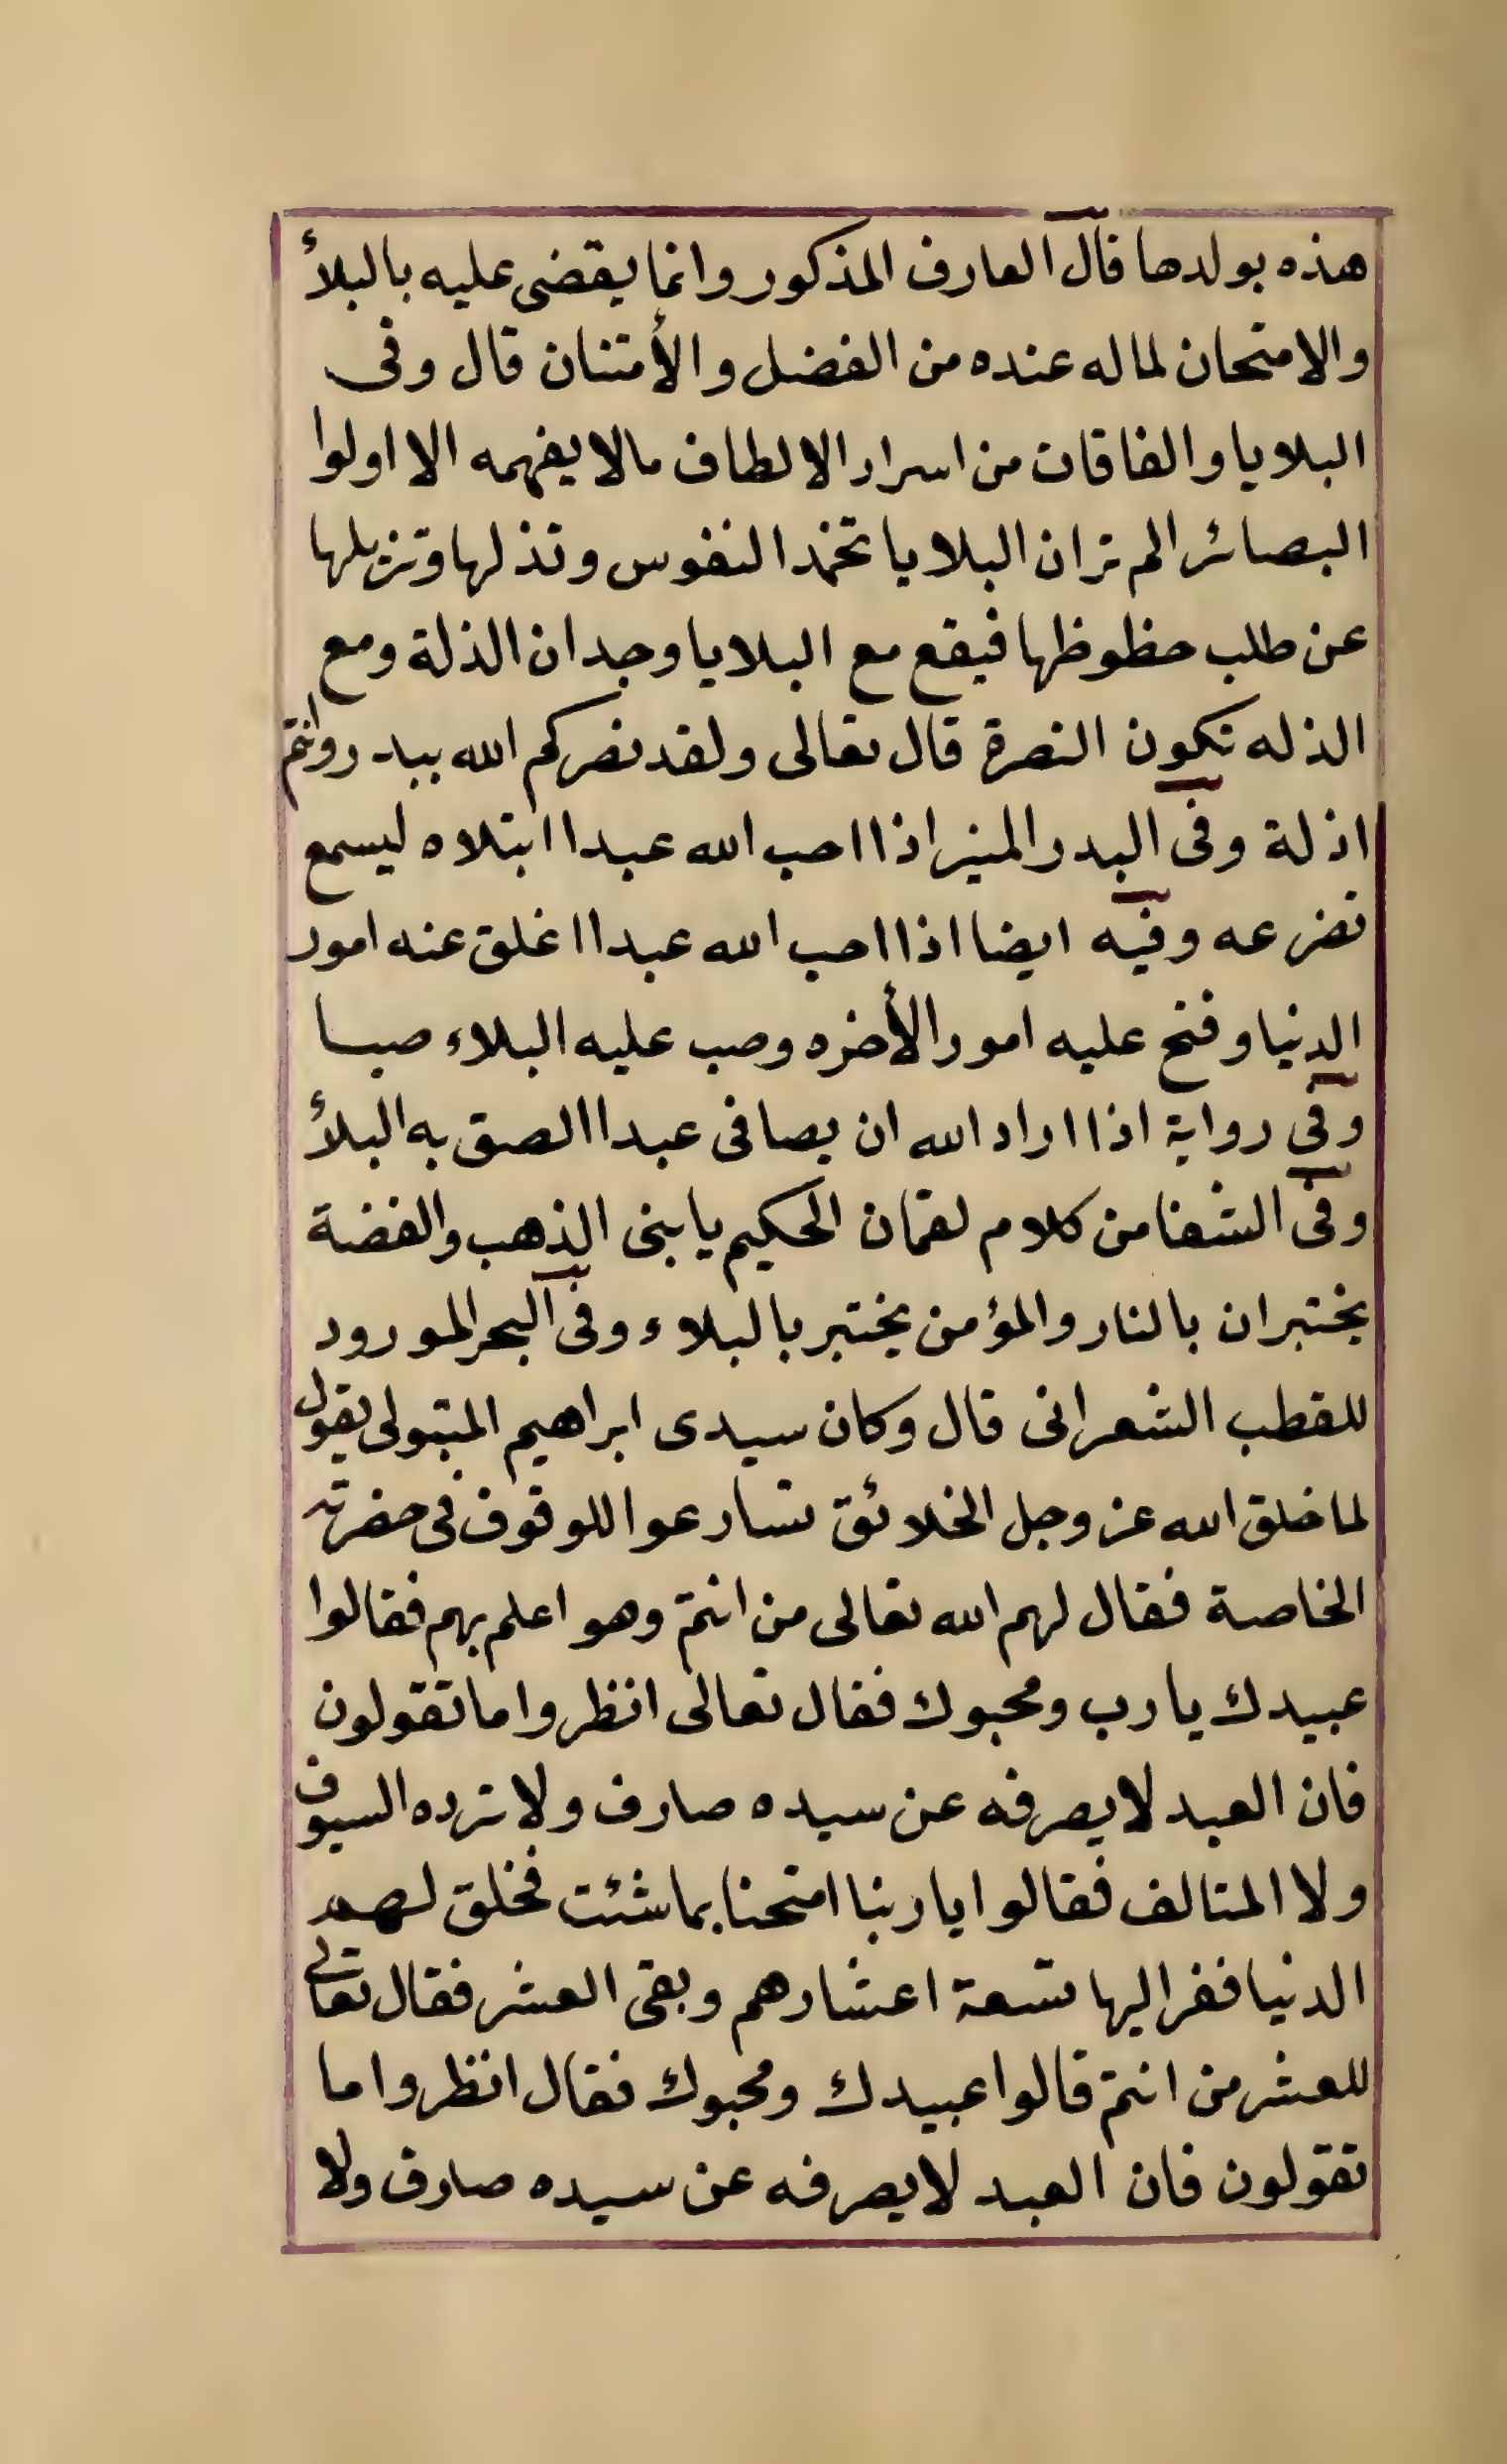 هذه بولدها قال العارف المذكور وانما يقضى عليه بالبلأ
والامتحان لما له عنده من الفضل والأمتنان قال وفى
البلايا والفاقات من اسرار الالطاف مالا يفهمه الا اولوا
البصائر الم تر ان البلايا تخمد النفوس وتذلها وتزيلها
عن طلب حظوظها فيقع مع البلايا وجدان الذلة ومع
الذله تكون النصرة قال تعالى ولقد نصركم الله ببدر وانتم
اذلة وفى البدر المنير اذا احب الله عبدا ابتلاه ليسمع
تضرعه وفيه ايضا اذا احب الله عبدا اغلق عنه امور
الدنيا وفتح عليه امور الأخره وصب عليه البلاء صبا
وفى رواية اذا اراد الله ان يصافى عبدا الصق به البلأ
وفى الشفا من كلام لقمان الحكيم يا بنى الذهب والفضة
يختبران بالنار والمؤمن يختبر بالبلاء وفى البحر المورود
للقطب الشعرانى قال وكان سيدى ابراهيم المتبولى يقول
لما خلق الله عز وجل الخلائق تسارعوا للوقوف فى حضرته
الخاصة فقال لهم الله تعالى من انتم وهو اعلم بهم فقالوا
عبيدك يا رب ومحبوك فقال تعالى انظروا ما تقولون
فان العبد لا يصرفه عن سيده صارف ولا ترده السيوف
ولا المتالف فقالوا يا ربنا امتحنا بما شئت فخلق لهم
الدنيا ففر اليها تسعة اعشارهم وبقى العشر فقال تعالى
للعشر من انتم قالوا عبيدك ومحبوك فقال انظروا ما
تقولون فان العبد لا يصرفه عن سيده صارف ولا